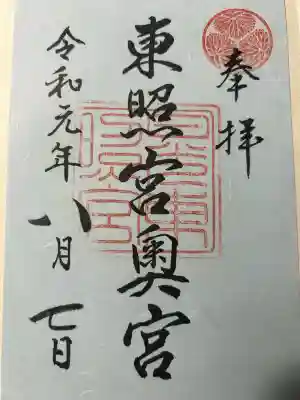 奉拝
東照宮奥宮
令和元年八月七日